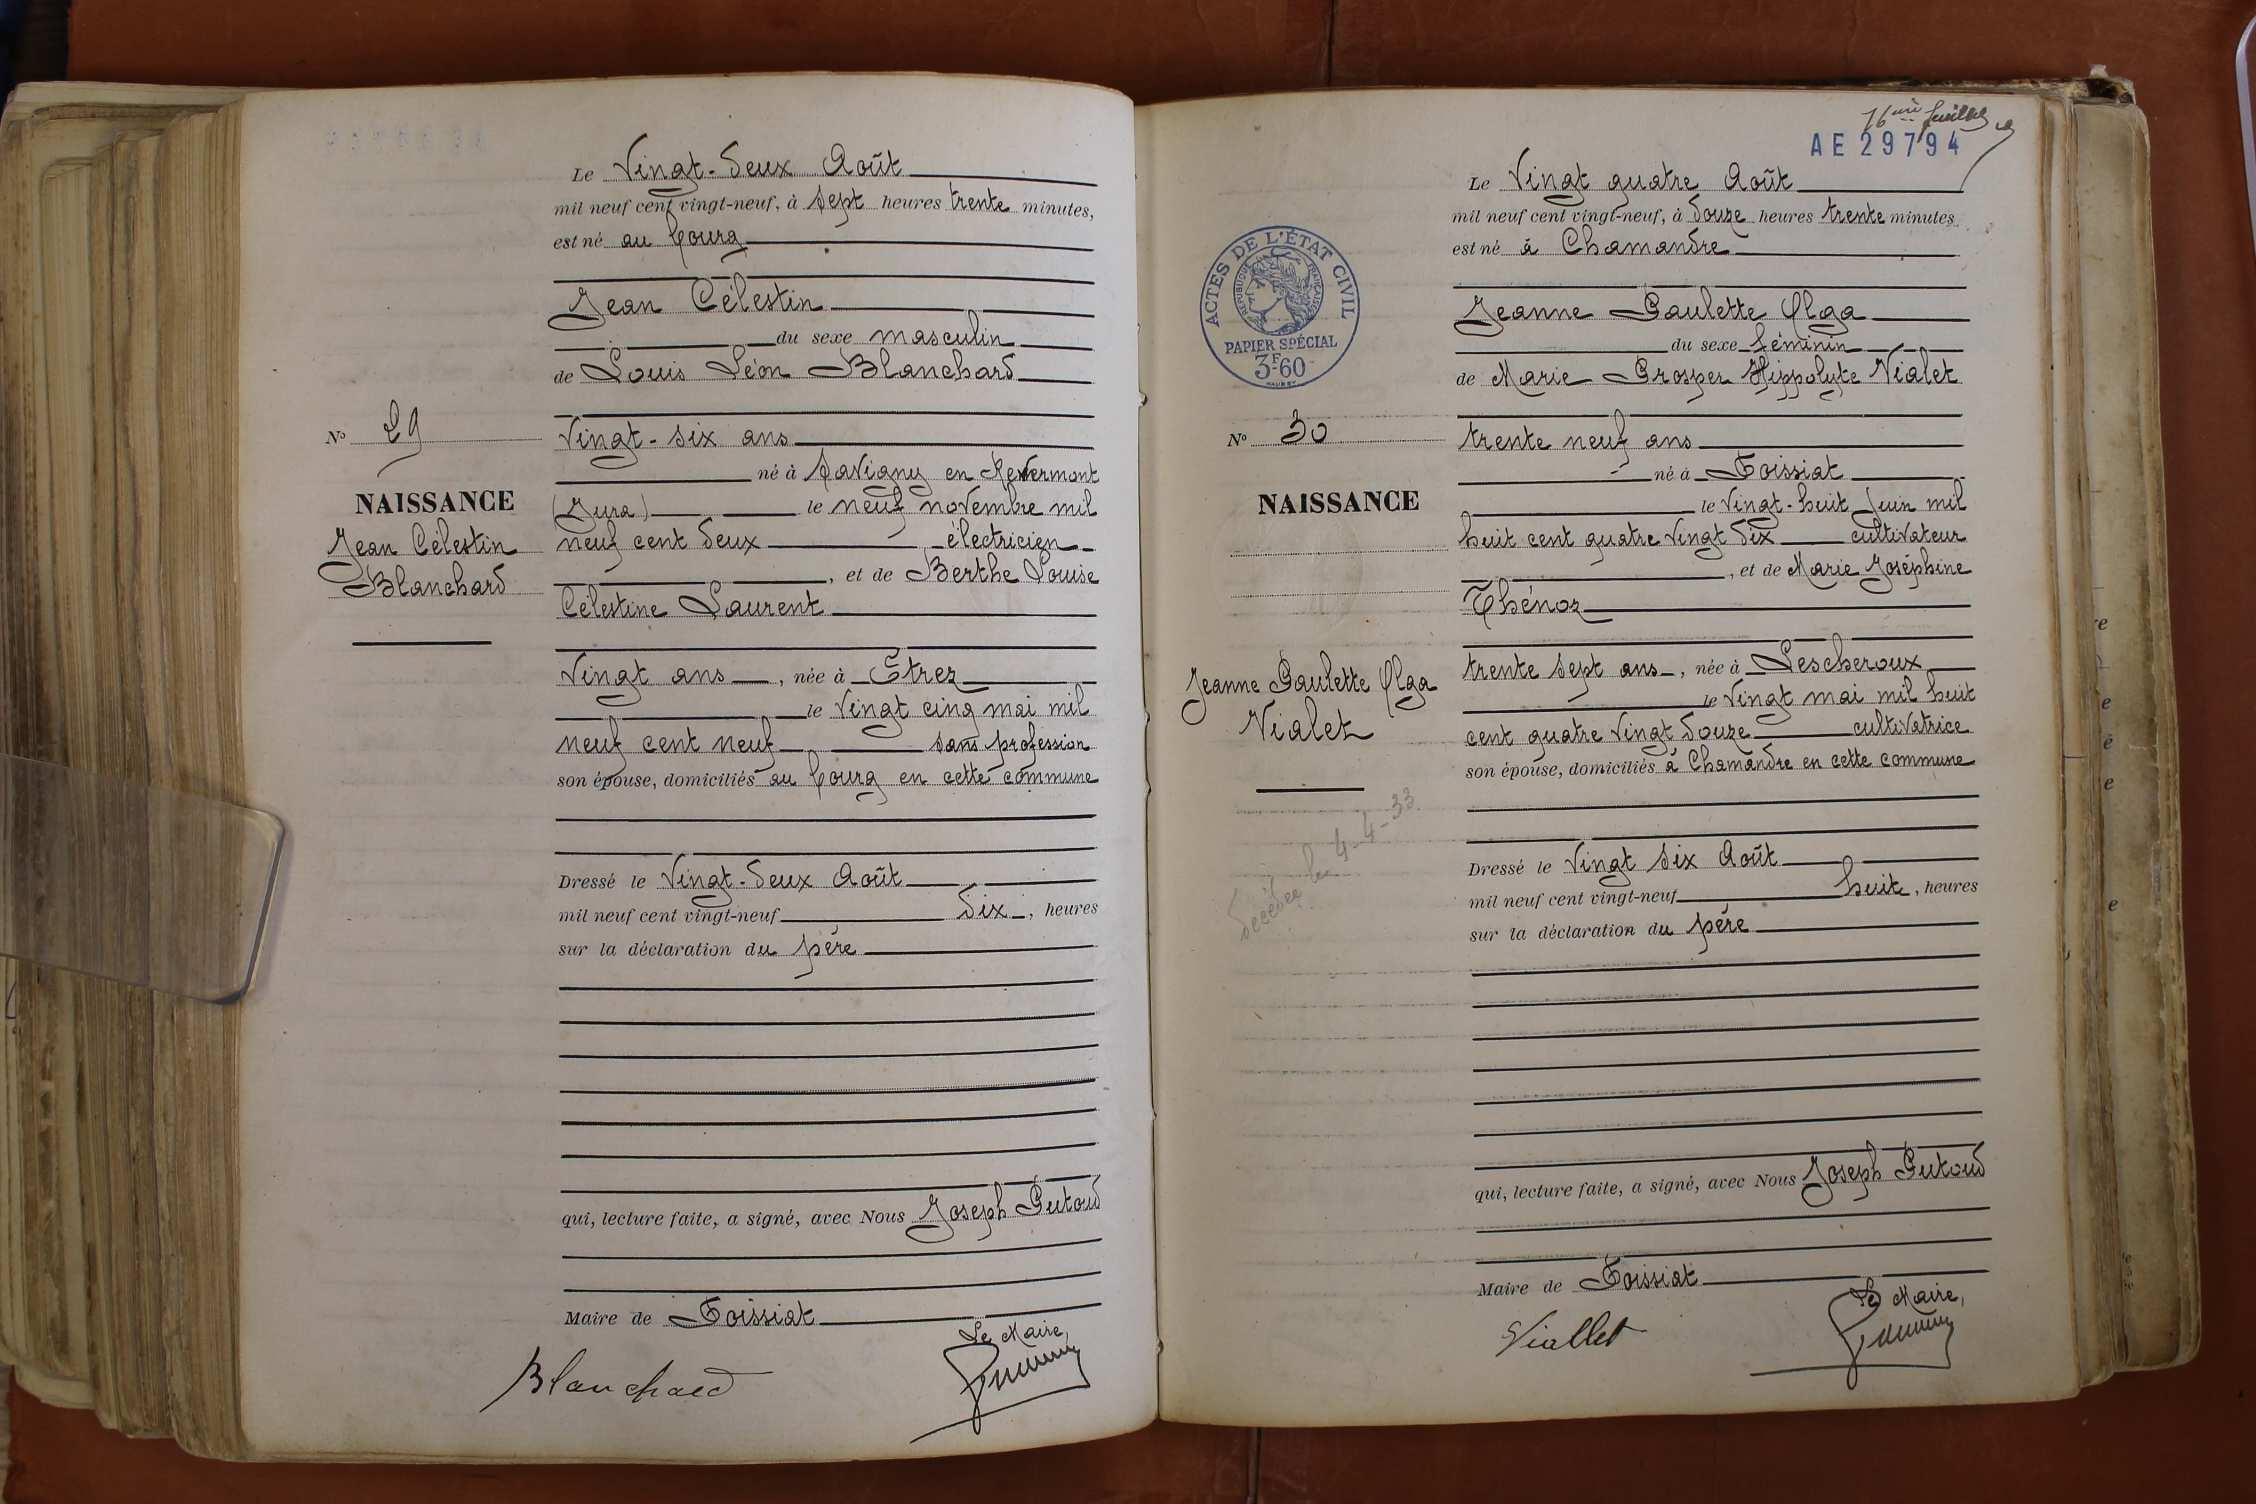 Le Vingt-deux Août
mil neuf cent vingt-neuf, à sept heures trente minutes,
est né au bourg
Jean Célestin
du sexe masculin
de Louis Léon Blanchard
Vingt-six ans
né à Savigny en Revermont
(Jura) le neuf novembre mil
neuf cent deux électricien
, et de Berthe Louise
Célestine Laurent
Vingt ans, née à Etrez
le Vingt cinq mai mil
neuf cent neuf sans profession
son épouse, domiciliés au bourg en cette commune
Dressé le Vingt-deux Août
mil neuf cent vingt-neuf dix, heures
sur la déclaration du père
qui, lecture faite, a signé, avec Nous Joseph Putoud
Maire de Foissiat
Le Maire,
Blanchard
No 29
NAISSANCE
Jean Célestin
Blanchard
16
AE 29794
Le Vingt quatre Août
mil neuf cent vingt-neuf, à douze heures trente minutes
est né à Chamandre
Jeanne Paulette Olga
du sexe féminin
de Marie Prosper Hippolyte Vialet
trente neuf ans
né à Foissiat
le Vingt-huit Juin mil
huit cent quatre vingt dix cultivateur
, et de Marie Joséphine
Thénoz
trente sept ans, née à Lescheroux
le Vingt mai mil huit
cent quatre Vingt douze cultivatrice
son épouse, domiciliés à Chamandre en cette commune
Dressé le Vingt six Août
mil neuf cent vingt-neuf huit, heures
sur la déclaration du père
qui, lecture faite, a signé, avec Nous Joseph Putoud
Maire de Foissiat
Le Maire,
Viallet
ACTES DE L'ÉTAT CIVIL
RÉPUBLIQUE FRANÇAISE
PAPIER SPÉCIAL
3F60
No 30
NAISSANCE
Jeanne Paulette Olga
Vialet
décédée le 4-4-33